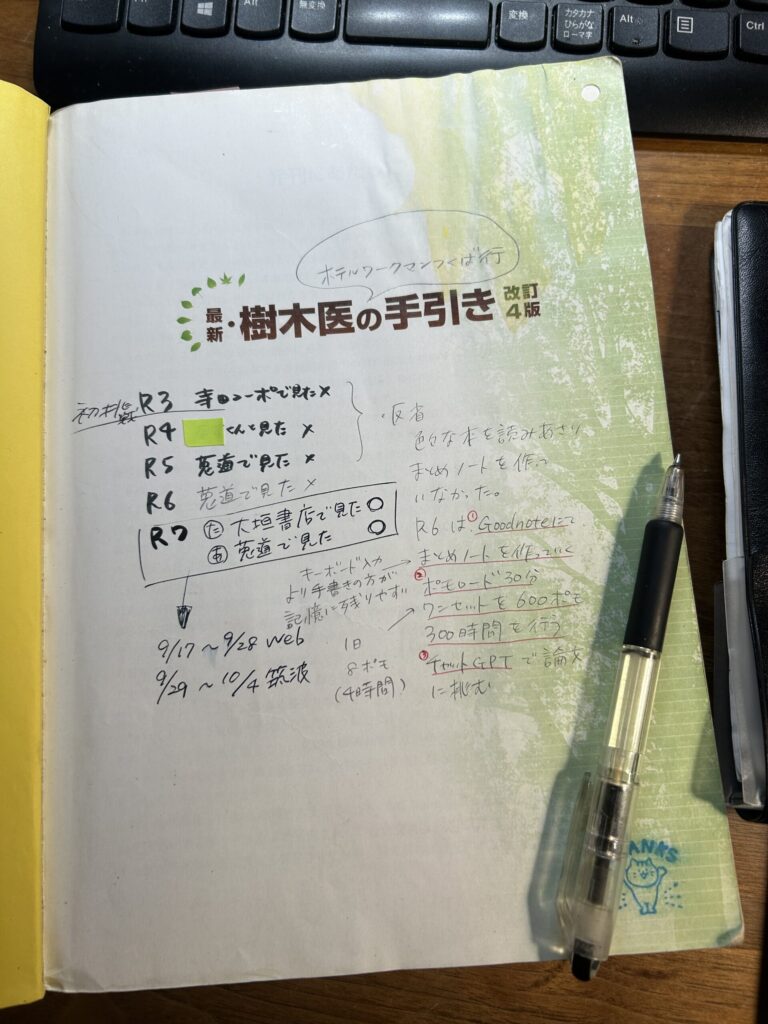 変換
カタカナ
ひらがな
ローマ字
Alt
Ctrl
Alt
無変換
ホテルワークマンつくば行
最新・樹木医の手引き 改訂4版
初挑戦 R3 寺田コーポで見た×
R4 くんと見た ×
R5 莵道で見た ×
R6 莵道で見た ×
R7 (た) 大垣書店で見た○
(あ) 莵道で見た ○
9/17～9/28 Web
9/29～10/4 筑波
・反省
色々な本を読みあさり
まとめノートを作って
いなかった。
R6は①Goodnoteにて
まとめノートを作っていく
キーボード入力
より手書きの方が
記憶に残りやすい
②ポモロード30分
ワンセットを600ポモ
300時間を行う
1日
8ポモ
(4時間)
③チャットGPTで論文
に挑む
ANKS